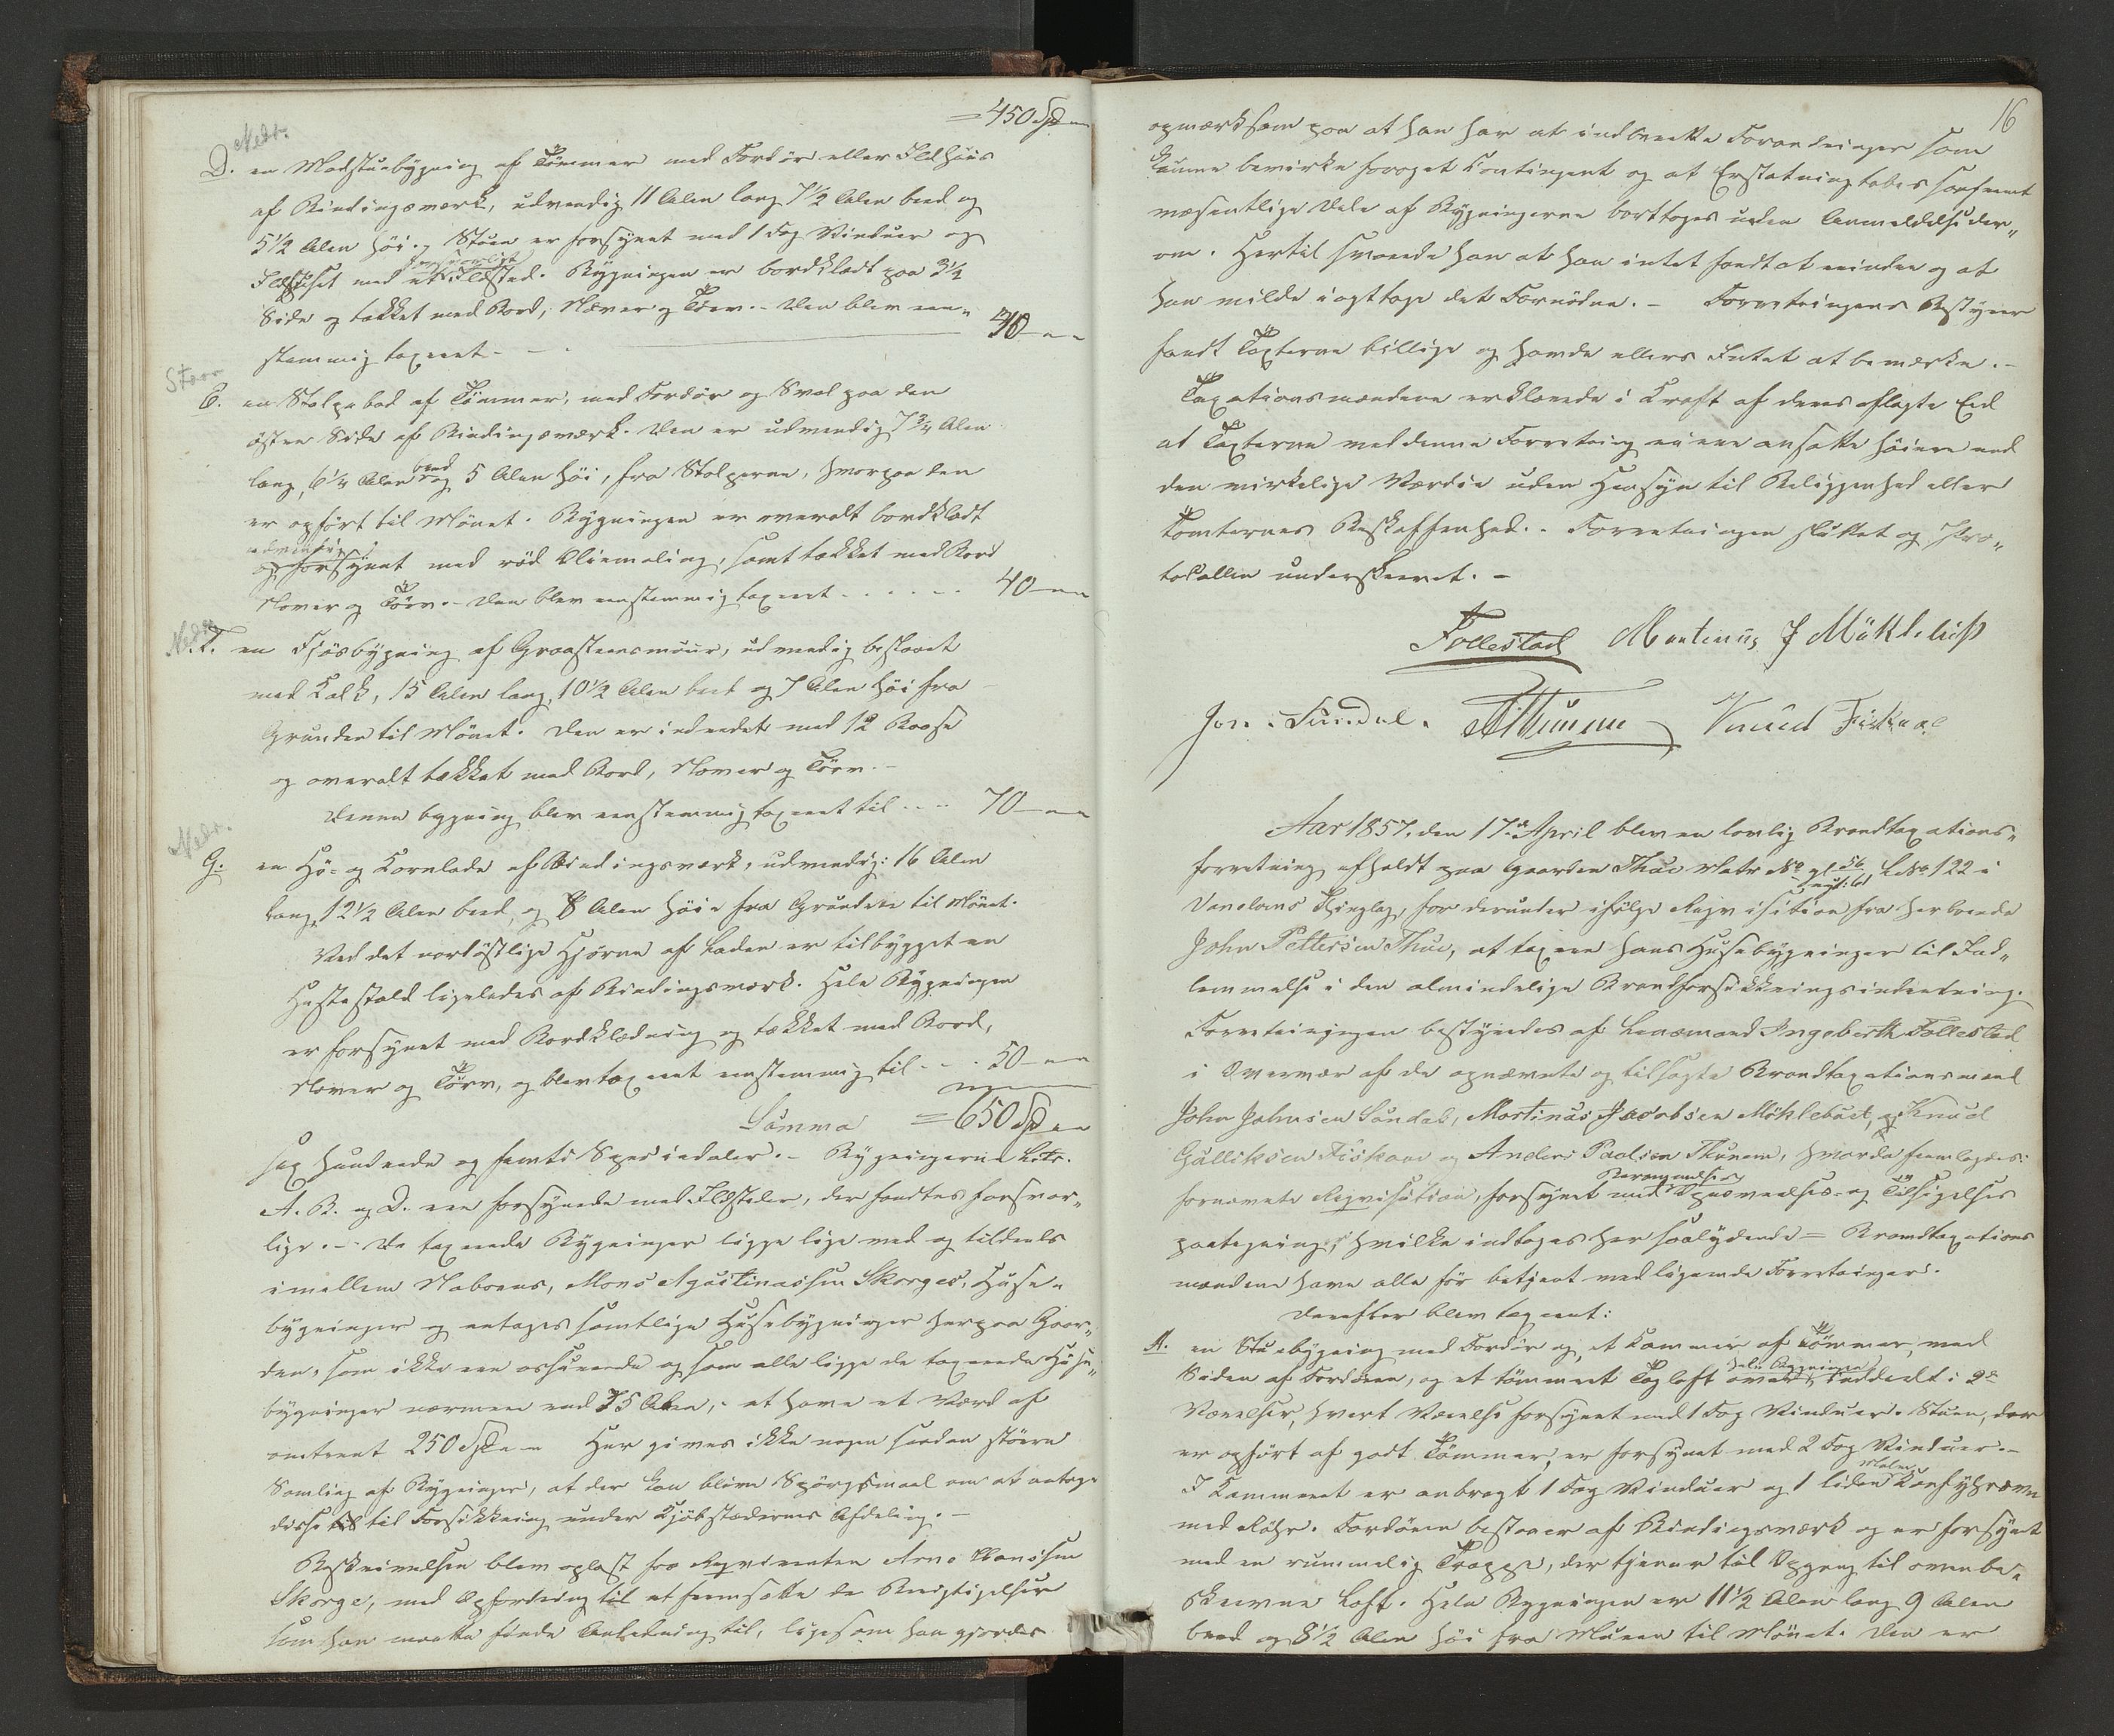 = 450 Spd
Nedr.
D. en Madstuebygning af Tømmer med Fordør eller Ildhuus
af Bindingsværk, udvendig 11 Alen lang 7 1/2 Alen bred og
5 1/2 Alen høi. Stuen er forsynet med 1 Fag Vinduer og
forsvarligt
Ildhuset med et Ildsted. Bygningen er bordklædt paa 3 1/2
Side og tækket med Bord, Næver og Törv. - Den blev een-
stemmig taxeret. - 40 -
Staar
E. en Stolpebod af Tømmer, med Fordør og Sval paa den
østre Side af Bindingsværk. Den er udvendig 7 3/4 Alen
bred
lang, 6 1/4 Alen og 5 Alen høi, fra Stolperne, hvorpaa den
er opført til Mønet. Bygningen er overalt bordklædt
udvendig
og forsynet med rød Oliemaling, samt tækket med Bord
Næver og Törv. - Den blev eenstemmig taxeret . . . . . . 40 -
Nedr.
F. en Fjösbygning af Graasteensmuur, udvendig bestaaet
med Kalk, 15 Alen lang, 10 1/2 Alen bred og 7 Alen høi fra
Grunden til Mønet. Den er indredet med 12 Baase
og overalt tækket med Bord, Næver og Törv. -
Denne bygning blev eenstemmig taxeret til . . . . 70 -
Nedr.
G. en Hö- og Kornlade af Bindingsværk, udvendig: 16 Alen
lang, 12 1/2 Alen bred, og 8 Alen høie fra Grunden til Mønet.
Ved det nordøstlige Hjørne af Laden er tilbygget en
Hestestald ligeledes af Bindingsværk. Hele Bygningen
er forsynet med Bordklædning og tækket med Bord,
Næver og Törv, og blev taxeret eenstemmig til . . . 50 -
Summa = 650 Spd
sex hundrede og femti Speciedaler. - Bygningerne Litr.
A. B. og D. ere forsynede med Ildsteder, der fandtes forsvar-
lige. - De taxerede Bygninger ligge lige ved og tildeels
imellem Naboens, Mons Agustinussen Skorges, Huse-
bygninger og antages samtlige Husebygninger herpaa Gaar-
den, som ikke ere assurerede og som alle ligge de taxerede Huse-
bygninger nærmere end 75 Alen, at have et Værd af
omtrent 250 Spd. Her gives ikke nogen saadan større
Samling af Bygninger, at der kan blive Spørgsmaal om at antage
disse til Forsikkring under Kjøbstædernes Afdeling. -
Beskrivelsen blev oplæst for Reqvirenten Arne Hansen
Skorge, med Opfordring til at fremsætte de Berigtigelser
som han maatte finde Anledning til, ligesom han gjordes
16
opmærksom paa at han har at indberette Forandringer som
kunne bevirke forøget Contingent og at Erstatning tabes saafremt
væsentlige Dele af Bygningerne borttages uden Anmeldelse der-
om. Hertil svarede han at han intet fandt at erindre og at
han vilde iagttage det Fornødne. - Forretningens Bestyrer
fandt Taxterne billige og havde ellers Intet at bemærke. -
Taxationsmændene erklærede i Kraft af deres aflagte Eed
at Taxterne ved denne Forretning ei ere ansatte høiere end
den virkelige Værdie uden Hensyn til Beliggenhed eller
Tomternes Beskaffenhed. - Forretningen sluttet og Pro-
tokollen underskrevet. -
Follestad Martinus J Mökkelbust
Jon. Sundal. AThunem Knud Fiskaae
Aar 1857, den 17de April blev en lovlig Brandtaxations-
forretning afholdt paa Gaarden Thue Matr. No gl 56 L No 122 i
nyt: 61
Vanelvens Thinglag, for derunder ifølge Reqvisition fra Herboende
John Pettersen Thue, at taxere hans Husebygninger til Ind-
lemmelse i den almindelige Brandforsikkringsindretning.
Forretningen bestyredes af Lensmand Ingebrikt Follestad
i Overvær af de opnævnte og tilsagte Brandtaxationsmænd
John Johnsen Sundal, Martinus Jacobsen Möklebust, og Knud
Gulliksen Fiskaae og Anders Paulsen Thunem, hvorda fremlagdes:
Beramnelses
fornævnte Reqvisition, forsynet med Opnævnelses- og Tilsigelses
paategning, hvilke indtages her saalydende = Brandtaxations
mændene have alle før betjent ved lignende Forretninger.
Derefter blev taxeret:
A. en Stuebygning med Fordør og et Kammer af Tømmer, med
hele Bygningen
Siden af Fordøren, og et tømmret Tagloft over inddeelt i 2de
Værelser, hvert Værelse forsynet med 1 Fag Vinduer. Stuen, der
er opført af godt Tømmer, er forsynet med 2 Fag Vinduer. -
I Kammeret er anbragt 1 Fag Vinduer og 1 liden
med Rör. Fordøren bestaaer af Bindingsværk og er forsynet
med en rummelig Trappe, der tjener til Opgang til ovenbe-
skrevne Loft. Hele Bygningen er 11 1/2 Alen lang 9 Alen
bred og 8 1/2 Alen høi fra Muren til Mønet. Den er